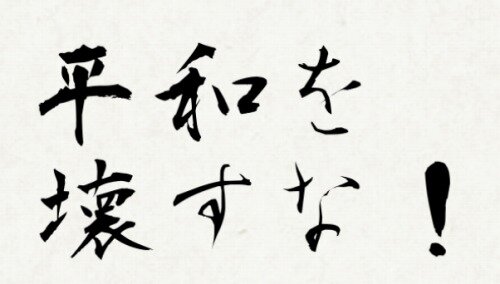 平和を
壊すな！